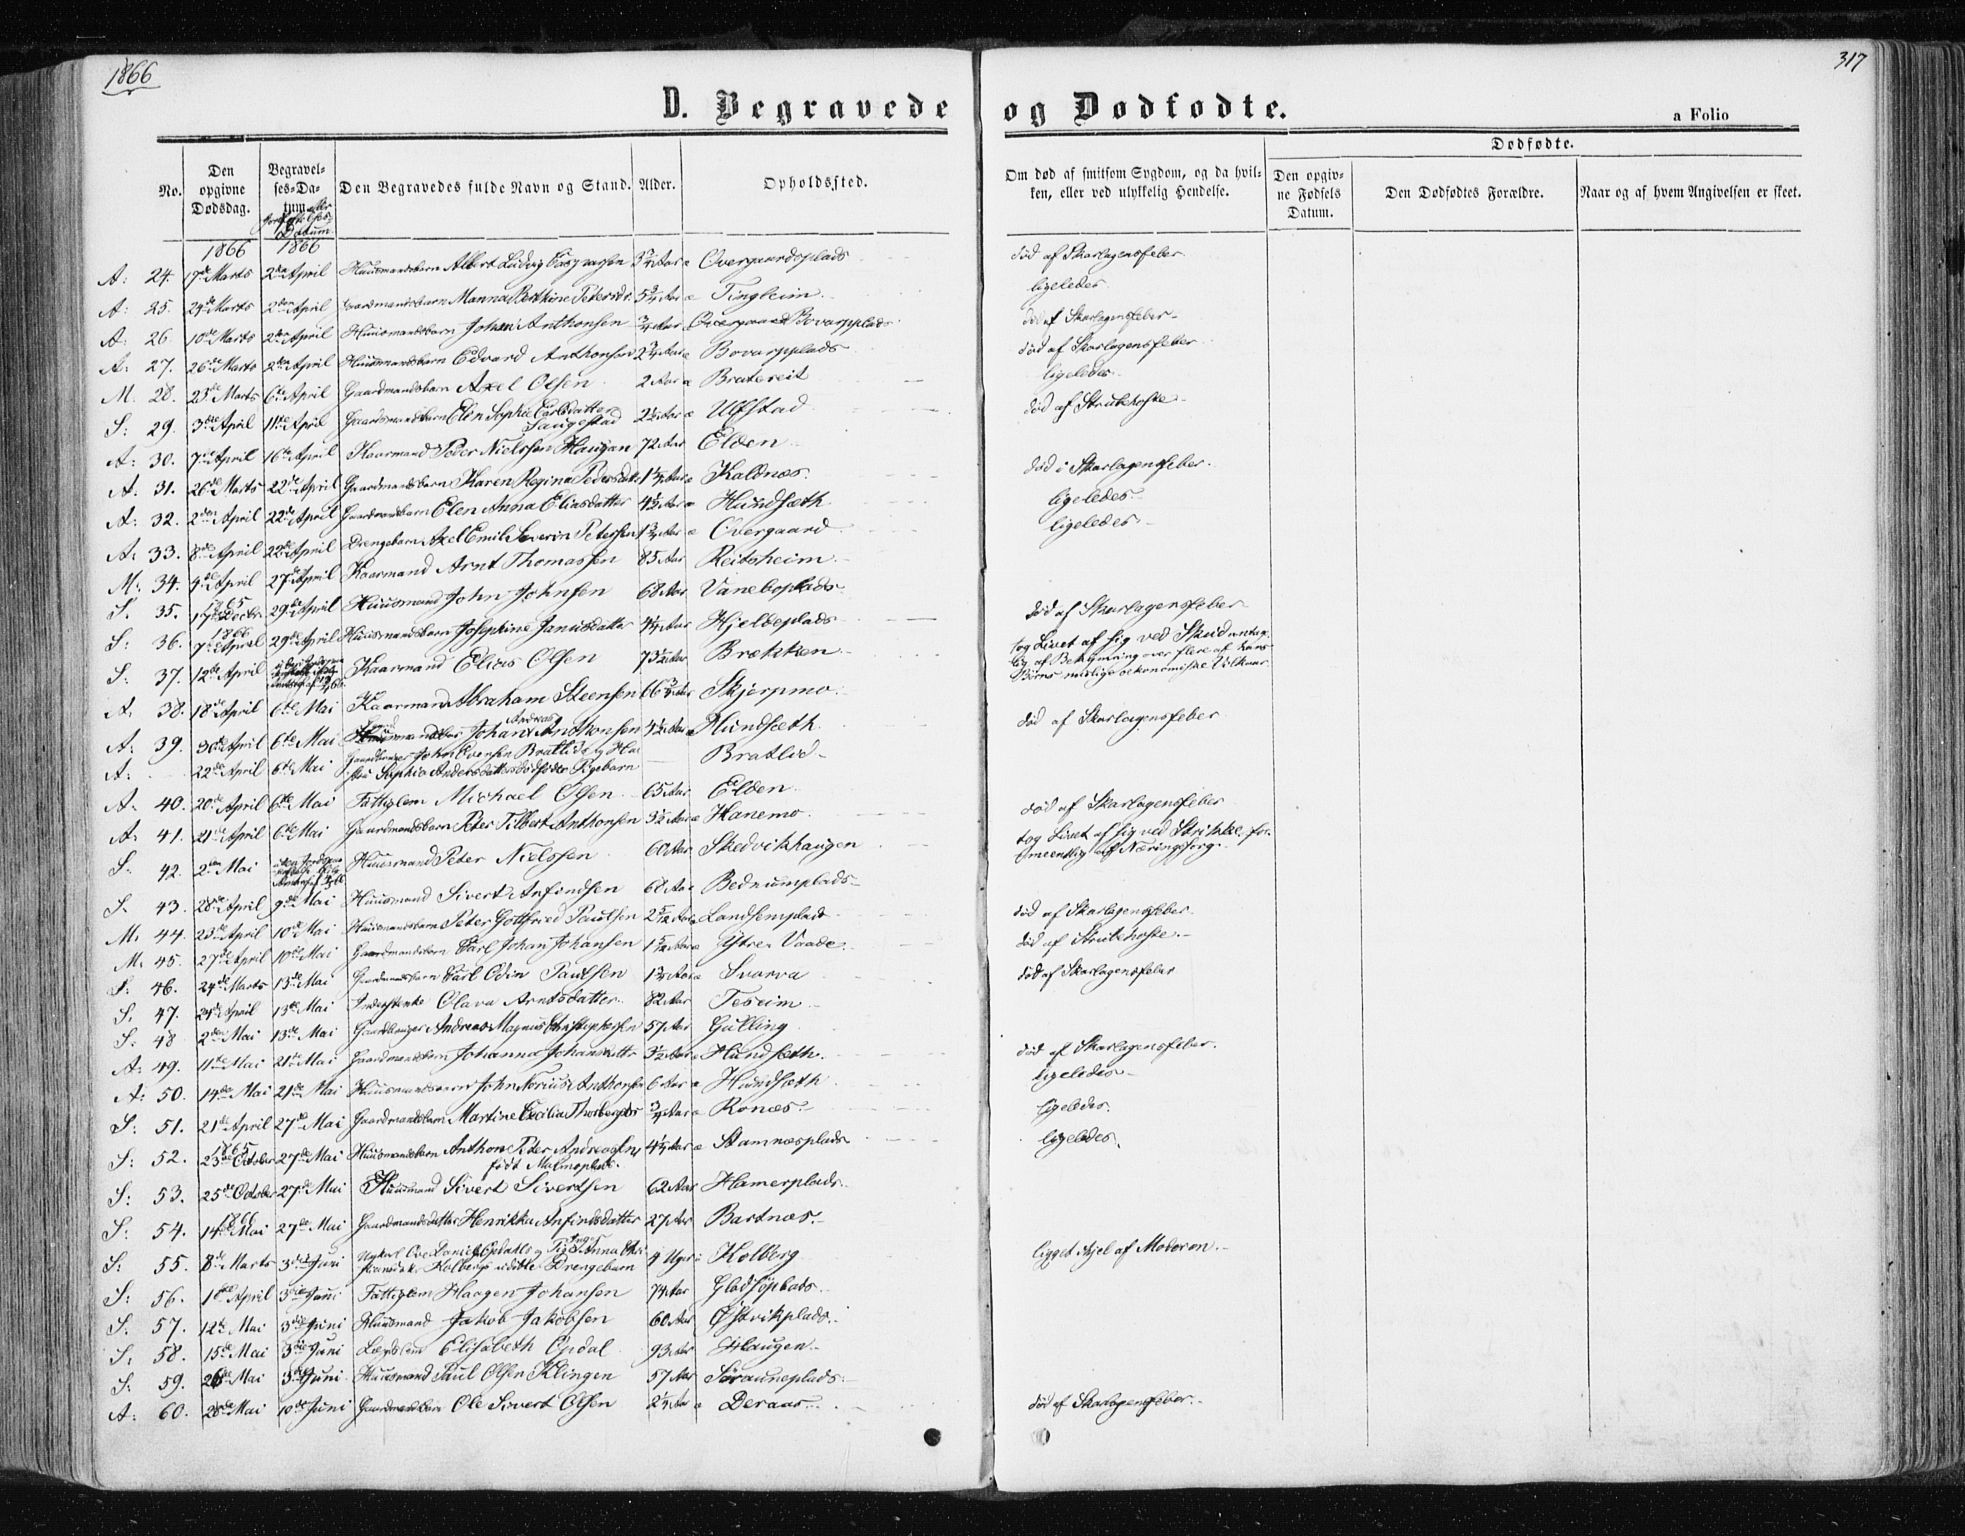 1866
317
D. Begravede og Dødfødte.
a Folio
No.
Den opgivne Dødsdag.
Begravelses-Datum
eller Jordfæstelses-Datum
Den Begravedes fulde Navn og Stand.
Alder.
Opholdssted.
Om død af smitsom Sygdom, og da hvilken, eller ved ulykkelig Hendelse.
Dødfødte.
Den opgivne Fødsels Datum.
Den Dødfødtes Forældre.
Naar og af hvem Angivelsen er skeet.
1866 1866
A: 24. 17de Marts 2den April Huusmandsbarn Albert Ludvig Caspersen 3 3/4 Aar Overgaardsplads død af Skarlagensfeber
A: 25. 24de Marts 2den April Gaardmandsbarn Manna Berthine Petersdr. 5 3/4 Aar Tingheim ligeledes
A: 26. 10de Marts 2den April Huusmandsbarn Johan Anthonsen 3/4 Aar Bovarpplads død af Skarlagensfeber
A: 27. 26de Marts 2den April Huusmandsbarn Edvard Anthonsen 2 3/4 Aar Bovarpplads død af Skarlagensfeber
M. 28. 25de Marts 6te April Gaardmandsbarn Axel Olsen 2 Aar Bratereit ligeledes
S: 29. 3die April 11te April Gaardmandsbarn Elen Sophie Carlsdatter Saugestad 2 1/2 Aar Ulfstad død af Strubehoste
A: 30. 7de April 16de April Kaarmand Peder Nielssen Haugan 72 Aar Elden
A: 31. 26de Marts 22de April Gaardmandsbarn Karen Regina Pedersdatter 1 1/4 Aar Kaldnæs død i Skarlagensfeber.
A: 32. 2den April 22de April Gaardmandsbarn Elen Anna Eliasdatter 4 1/2 Aar Hundsæth ligeledes
A: 33. 8de April 22de April Drengebarn Axel Emil Severin Petersen 1 3/4 Aar Overgaard ligeledes
M: 34. 4de April 27de April Kaarmand Arnt Thomassen 85 Aar Reitsheim
S. 35. 1865 17de Decbr. 29de April Huusmand John Johnsen 68 Aar Vaneboplads
S: 36. 1866 7de April 29de April Huusmandsbarn Josephine Janusdatter 4 1/4 Aar Hjeldeplads død af Skarlagensfeber
S: 37. 12te April Kaarmand Elias Olsen 73 1/2 Aar Brækken tog Livet af sig ved Skud antagelig af Bekymring over flere af hans Børns mislige oekonomiske Vilkaar
A. 38. 18de April 6te Mai Kaarmand Abraham Steensen 66 3/4 Aar Skjerpmo
A: 39. 30de April 6te Mai Johan Andreas Anthonsen 4 1/2 Aar Hundsæth død af Skarlagensfeber
A: 22de April 6te Mai Gaardbruger John Evensen Bratlids og Hustru Sophia Andersdatters dødfødte Pigebarn Bratlid
A. 40. 20de April 6te Mai Fattiglem Michael Olsen 65 Aar Elden
A: 41. 21de April 6te Mai Gaardmandsbarn Peter Tilbert Anthonsen 3 1/2 Aar Hanemo død af Skarlagensfeber
S. 42. 2den Mai Huusmand Peter Nielssen 60 Aar Skedvikhaugen tog Livet af sig ved Strikke formeentlig af Næringssorg.
S. 43. 28de April 9de Mai Huusmand Sivert Anfindsen 61 Aar Bednumplads
M. 44. 23de April 10de Mai Huusmandsbarn Peter Gottfried Paulsen 2 5/12 Aar Landsemplads død af Skarlagensfeber.
M. 45. 27de April 10de Mai Gaardmandsbarn Carl Johan Johansen 1 5/12 Aar Ystre Vaade død af Strubehoste.
S: 46. 24de Marts 13de Mai Gaardmandsbarn Carl Odin Paulsen 1 3/4 Aar Svarva død af Skarlagensfeber
S. 47. 24de April 13de Mai Inderstenke Olava Arntsdatter 82 Aar Teseim
S: 48 2den Mai 13de Mai Gaardbruger Andreas Magnus Christophersen 57 Aar Gulling
A: 49. 11te Mai 21de Mai Gaardmandsbarn Johanna Johansdatter 3 1/2 Aar Hundsæth. død af Skarlagensfeber.
A: 50. 14de Mai 21de Mai Huusmandsbarn John Norius Anthonsen 6 Aar Hundsæth ligeledes
S: 51. 21de April 27de Mai Gaardmandsbarn Martine Cecilia Thorbergsdr. 3/4 Aar Ronæs ligeledes.
S: 52. 1865 23de October 27de Mai Huusmandsbarn Anthon Peter Andreassen født Malmoplads 4 1/4 Aar Stamnæsplads ligeledes.
S: 53. 25de October 27de Mai Huusmand Sivert Sivertsen 62 Aar Hamerplads
S: 54. 1866 14de Mai 27de Mai Gaardmandsdatter Henrikka Anfindsdatter 27 Aar Bartnæs
S: 55. 8de Marts 3die Juni Ungkarl Ove Daniel Opdahls og Pige Inger Anna Holbergs uægte Drengebarn 4 Uger Holberg ligget ihjel af Moderen.
S: 56. 1ste April 3die Juni Fattiglem Haagen Johansen 74 Aar Gladsøplads
S. 57. 12te Mai 3die Juni Huusmand Jakob Jakobsen 60 Aar Østvikplads
S: 58. 15de Mai 3die Juni Lægdslem Elisabeth Opdal 93 Aar Haugen
S: 59. 26de Mai 3die Juni Huusmand Paul Olsen Klingen 57 Aar Søraunesplads
A: 60. 28de Mai 10de Juni Gaardmandsbarn Ole Sivert Olsen 2 1/4 Aar Deraas død af Skarlagensfeber.